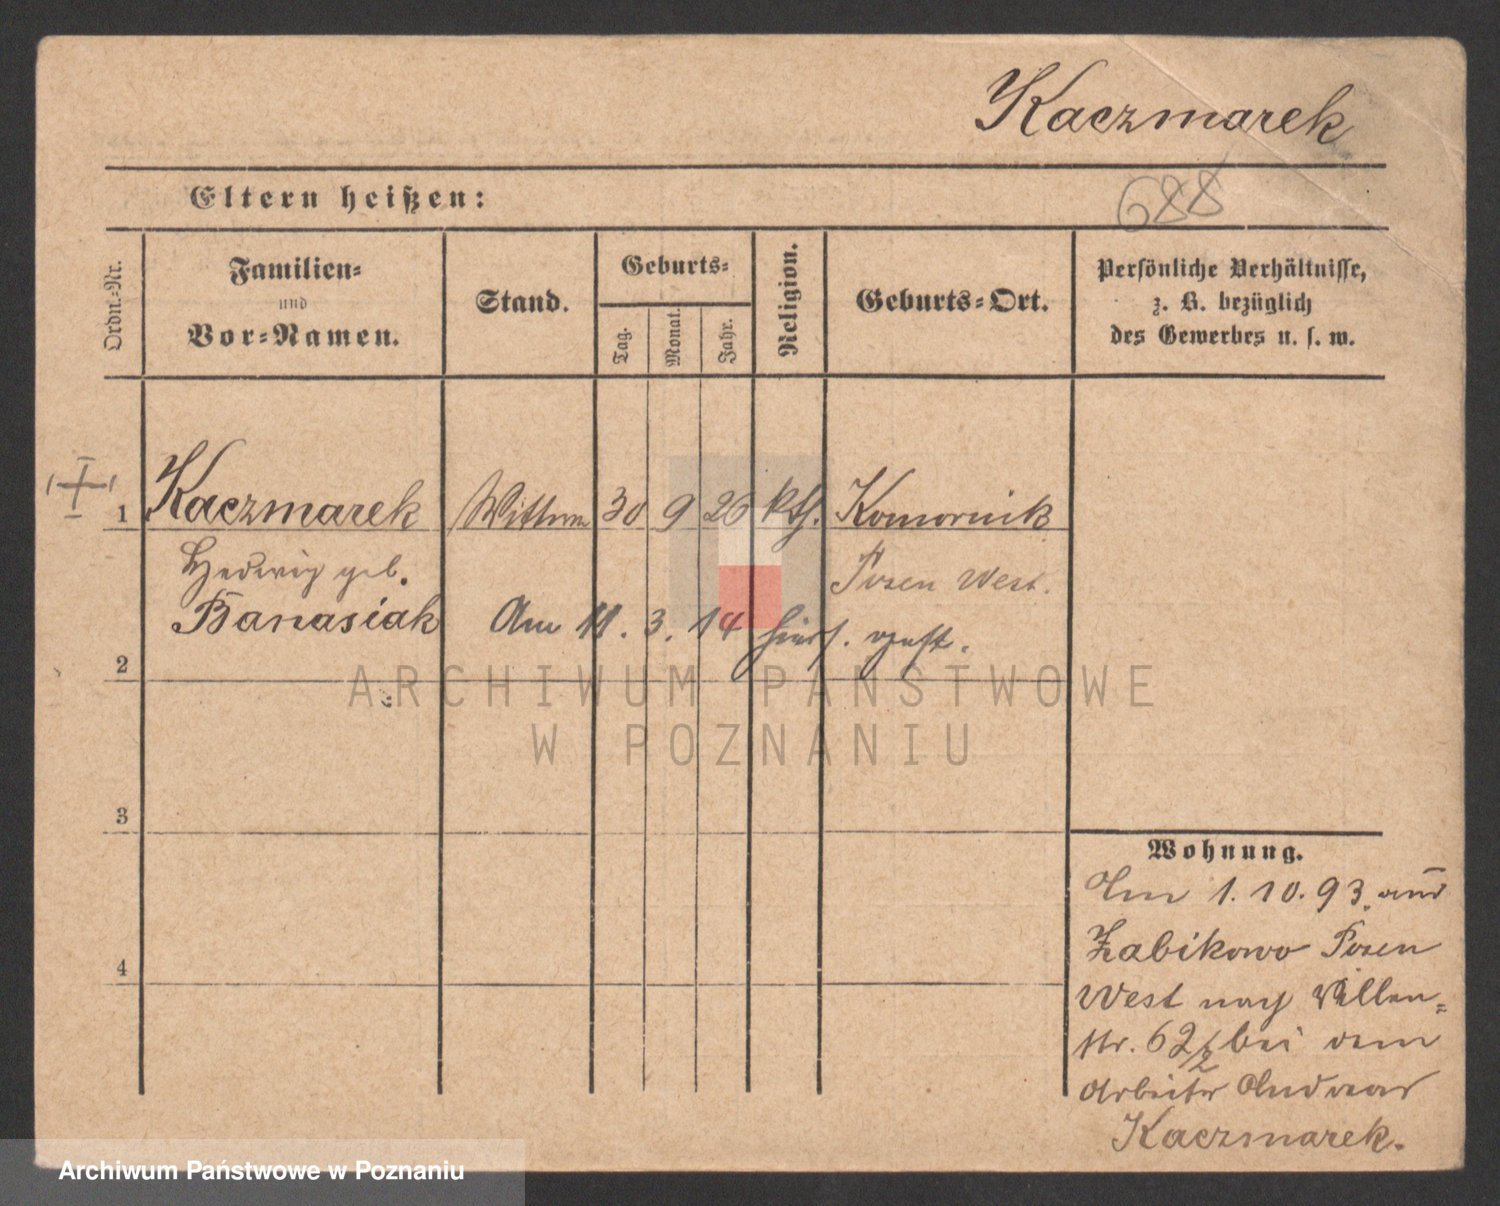 Kaczmarek
Eltern heißen:
688
Ordn.-Nr.
Familien-
und
Vor-Namen.
Stand.
Geburts-
Tag.
Monat.
Jahr.
Religion.
Geburts-Ort.
Persönliche Verhältnisse,
z. B. bezüglich
des Gewerbes u. s. w.
1 Kaczmarek Wittwe 30 9 26 kth. Komornik
Hedwig geb. Posen West.
Banasiak Am 11. 3. 14 hiers. gest.
2
ARCHIWUM PAŃSTWOWE
W POZNANIU
3
Wohnung.
Am 1. 10. 93. aus
Zabikowo Posen
West nach
str. 62 bei dem
Arbeiter Andreas
Kaczmarek.
4
Archiwum Państwowe w Poznaniu